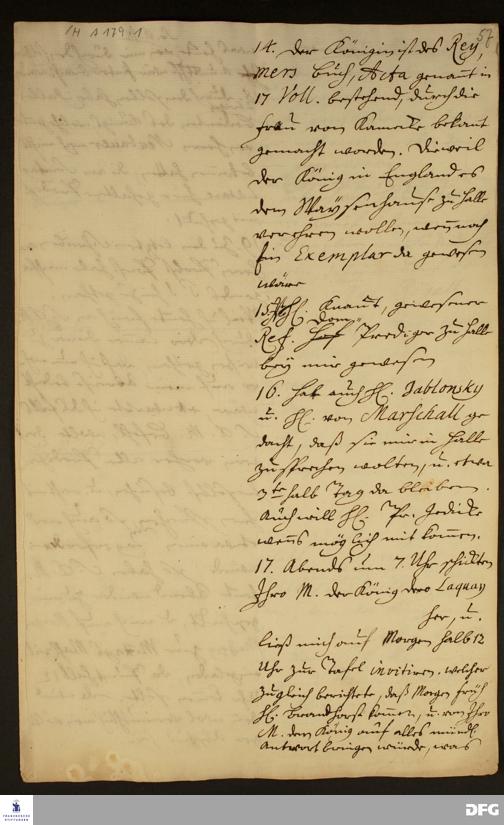 H A 179:1
57
14. Der Königin ist des Rey,
mers buch, Acta genant in
17 Voll. bestehend, durch die
Frau von Kamecke bekant
gemacht worden. Dieweil
der König in England es
dem Waysenhause zu Halle
verehren wollen, wenn noch
ein Exemplar da gewesen
wäre
15. H. Knaut, gewesener
Dom-
Ref. Hof Prediger zu Halle
bey mir gewesen
16. hat auch H. Jablonsky
u. H. von Marschall ge
dacht, daß sie mir in Halle
zusprechen wolten, u. etwa
3te halb Tag da bleiben.
Auch will H. Pr. Gedicke
wenns möglich mit kommen.
17. Abends um 7. Uhr schickten
Ihro M. der König dero Laquay
her, u.
ließ mich auf Morgen halb 12
Uhr zur Tafel invitiren. welcher
zugleich berichtete, daß Morgen früh
H. Brandhorst kommen, u. von Ihro
M. dem König auf alles mündl.
Antwort bringen würde, was
FRANCKESCHE STIFTUNGEN
DFG